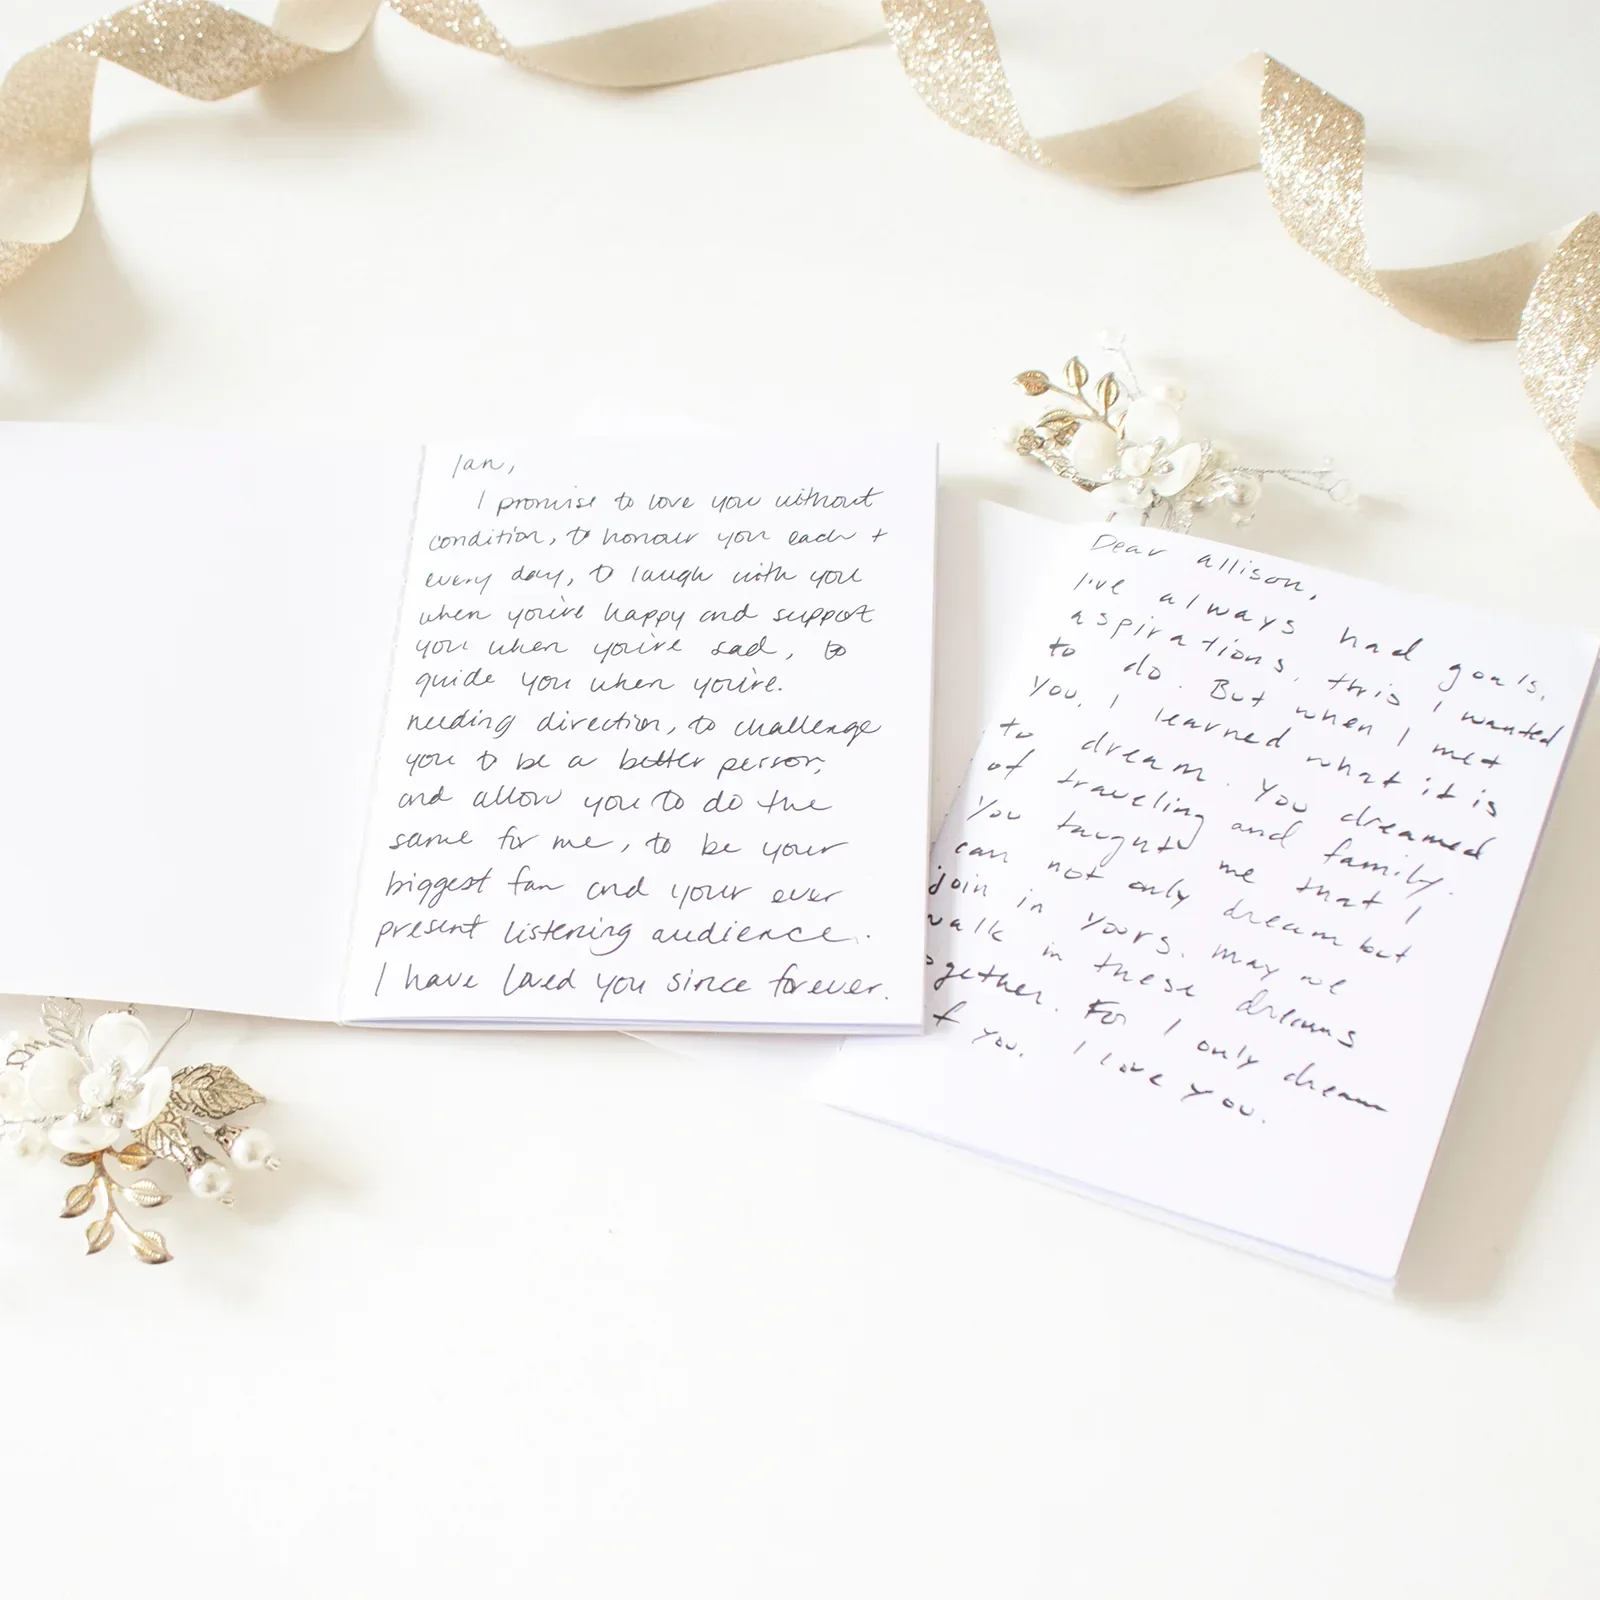 Ian,
I promise to love you without
condition, to honour you each +
every day, to laugh with you
when you're happy and support
you when you're sad, to
guide you when you're.
needing direction, to challenge
you to be a better person,
and allow you to do the
same for me, to be your
biggest fan and your ever
present listening audience.
I have loved you since forever.
Dear Allison,
I've always had goals,
aspirations, this I wanted
to do. But when I met
you, I learned what it is
to dream. You dreamed
of traveling and family.
You taught me that I
can not only dream but
join in yours. May we
walk in these dreams
ogether. For I only dream
f you. I love you.